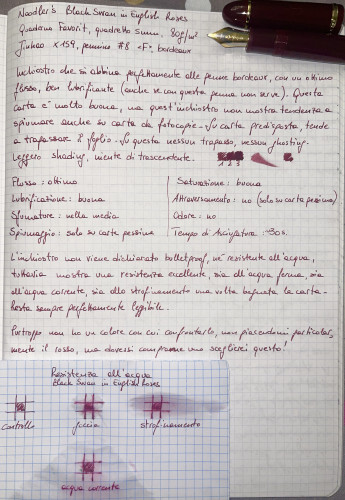 Noodler's Black Swan in English Roses
Quaderno Favorit, quadretto 5mm, 80g/m²
Jinhao x159, pennino #8 <F>, bordeaux
Inchiostro che si abbina perfettamente alle penne bordeaux, con un ottimo
flusso, ben lubrificante (anche se con questa penna non serve). Questa
carta è molto buona, ma quest'inchiostro non mostra tendenza a
spiumare anche su carta da fotocopie. Su carta predisposta, tende
a trapassare il foglio. Su questa nessun trapasso, nessun ghosting.
Leggero shading, niente di trascendente.
1 2 3
Flusso: ottimo
Lubrificazione: buona
Sfumature: nella media
Spiumaggio: solo su carte pessime
Saturazione: buona
Attraversamento: no (solo su carta pessima)
Odore: no
Tempo di asciugatura: ~30s.
L'inchiostro non viene dichiarato bulletproof, né resistente all'acqua,
tuttavia mostra una resistenza eccellente, sia all'acqua ferma, sia
all'acqua corrente, sia allo strofinamento una volta bagnata la carta.
Resta sempre perfettamente leggibile.
Purtroppo non ho un colore con cui confrontarlo, non piacendomi particolar,
mente il rosso, ma dovessi comprarne uno sceglierei questo!
Resistenza all'acqua
Black Swan in English Roses
controllo
goccia
strofinamento
acqua corrente